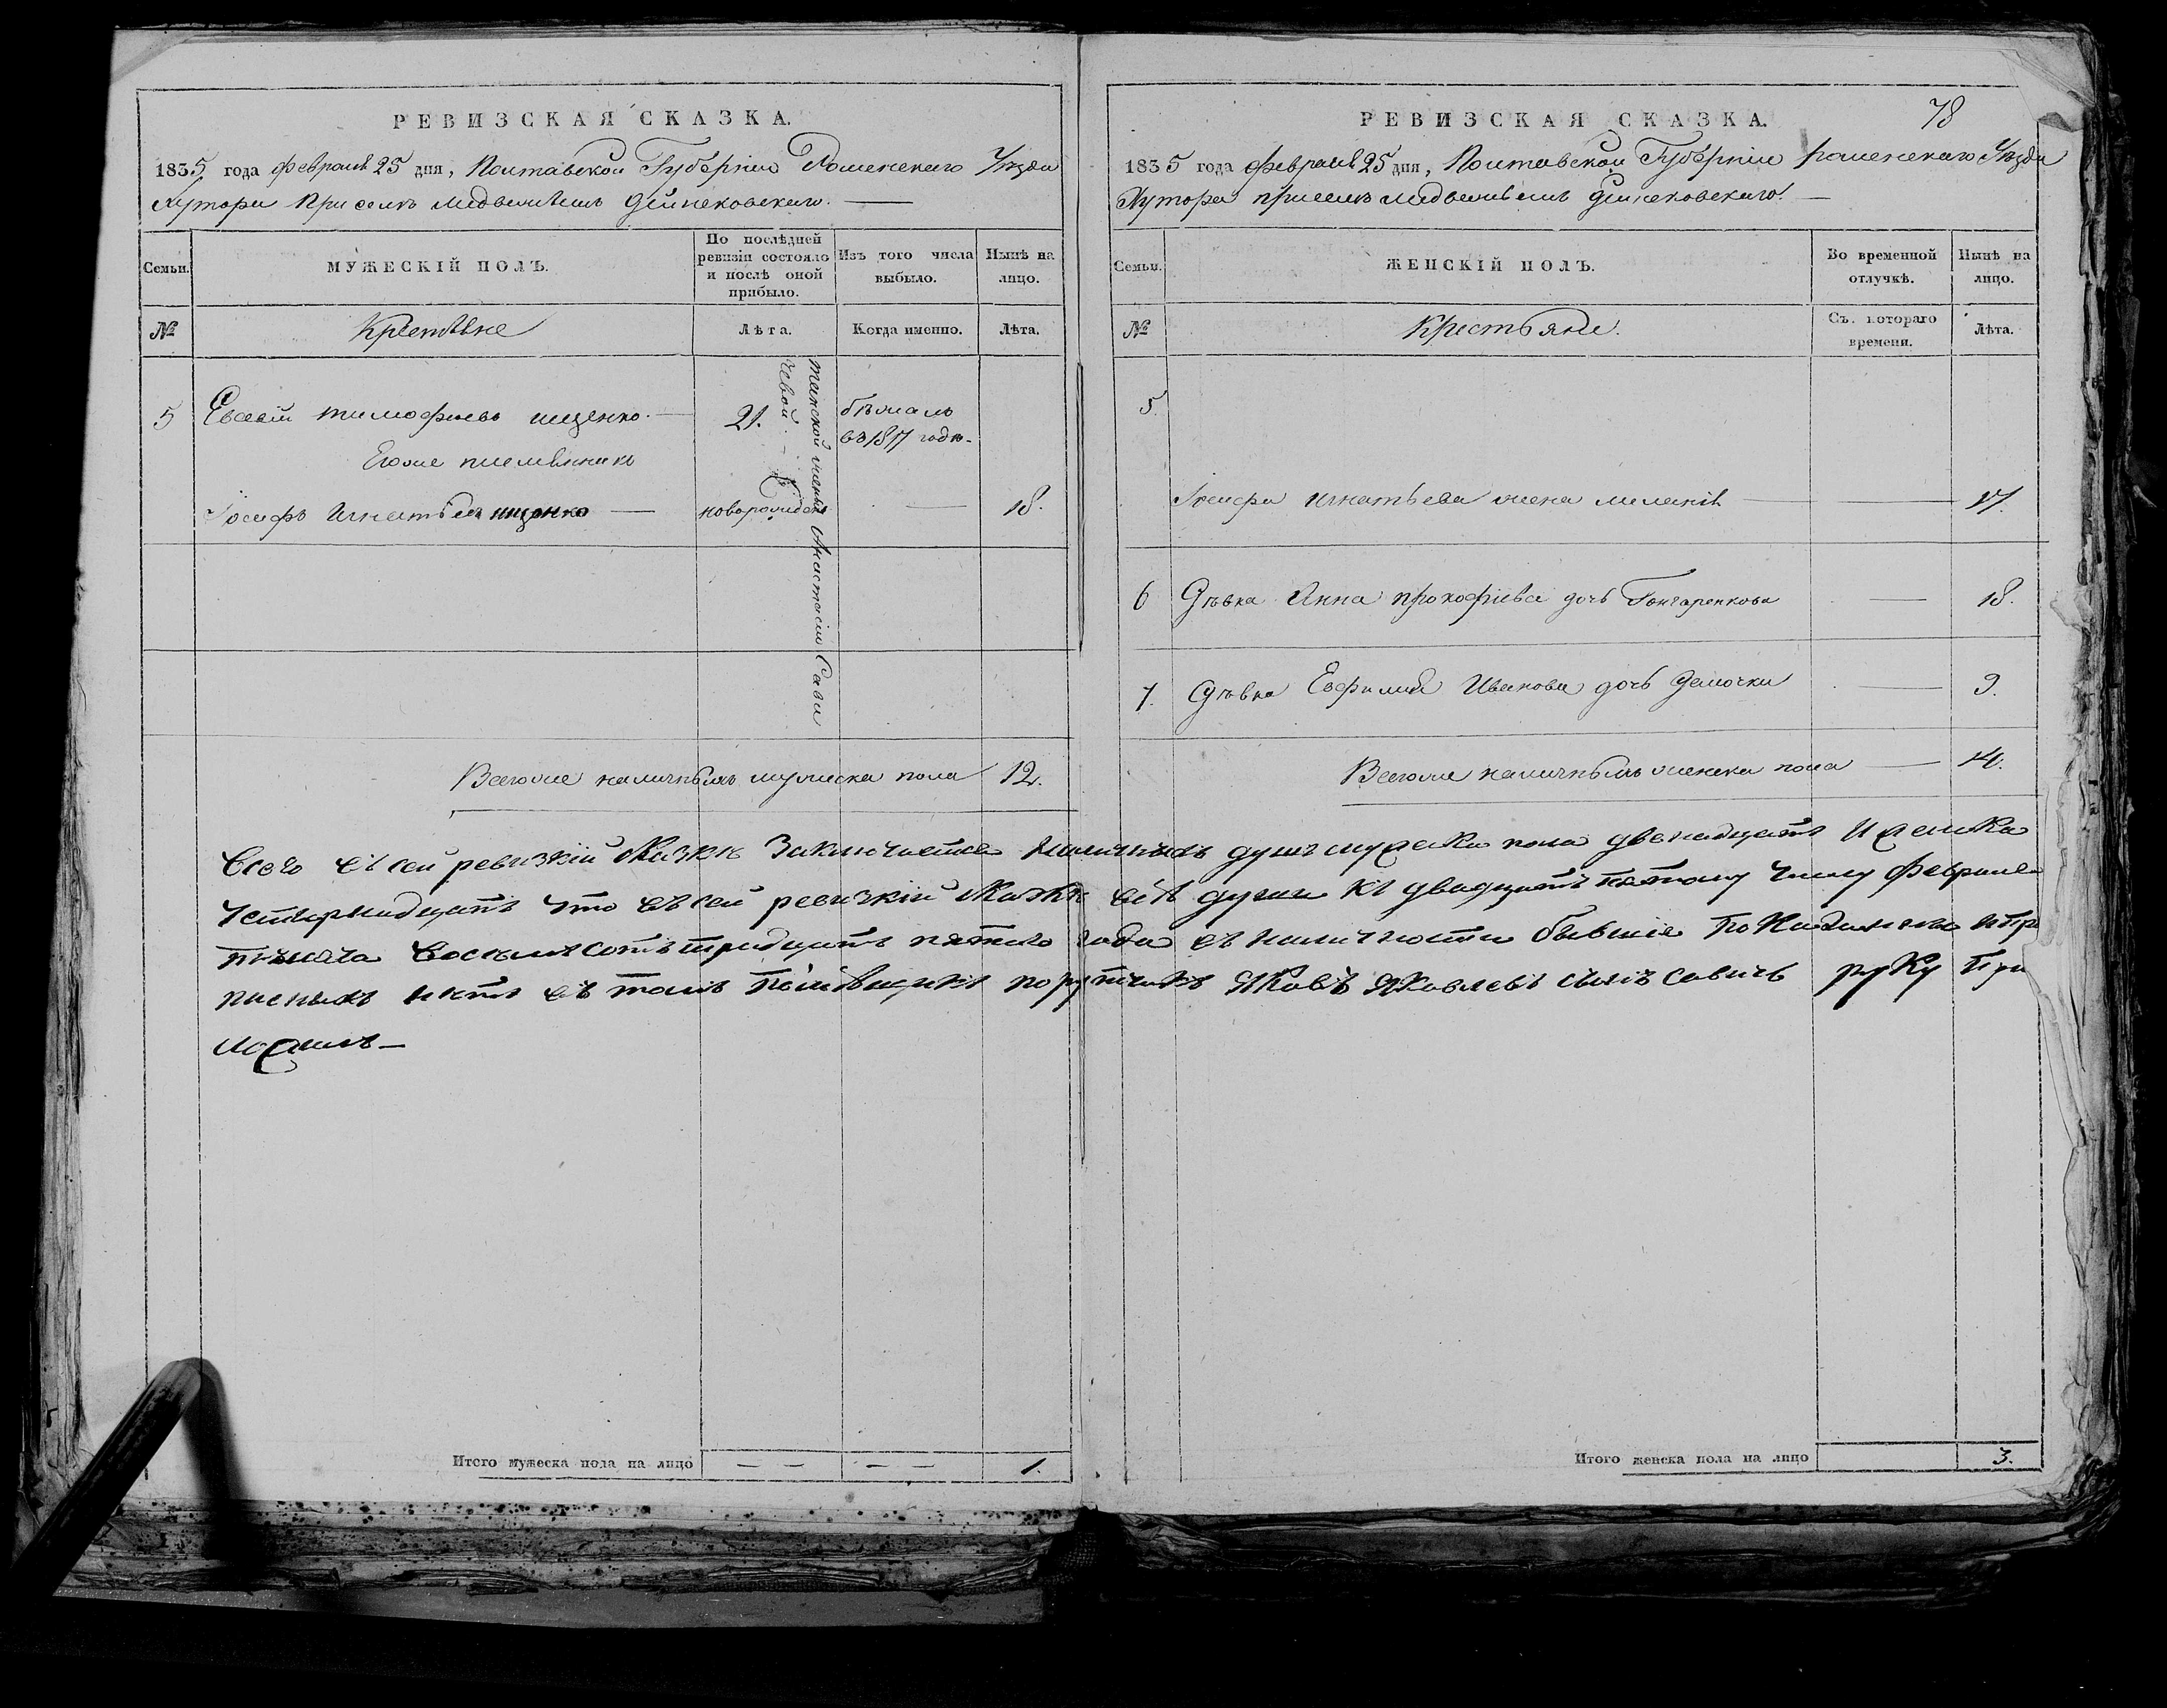 РЕВИЗСКАЯ СКАЗКА.
1835 года февраля 25 дня, Полтавской Губернии Роменского Уѣзда
Хутора при селѣ медвежьемъ Дейнековского. —
Семьи.
МУЖЕСКІЙ ПОЛЪ.
По послѣдней ревизіи состояло и послѣ оной прибыло.
Изъ того числа выбыло.
Нынѣ на лицо.
№
Крестьяне
Лѣта.
Когда именно.
Лѣта.
5 Евсевій тимофѣевъ ищенко. — 21. бѣжалъ
въ 1817 годѣ.
Егоже племянникъ
Іосифъ Игнатьевъ ищенко — новорожденъ — 18.
женой Анастасіи Сави
чевой. —
Всегоже наличныхъ мужеска пола 12.
РЕВИЗСКАЯ СКАЗКА.
78
1835 года февраля 25 дня, Полтавской Губерніи роменскаго Уѣзда
Хутора при селѣ медвежьемъ Дейнековского. —
Семьи.
ЖЕНСКІЙ ПОЛЪ.
Во временной отлучкѣ.
Нынѣ на лицо.
№
Крестьяне.
Съ котораго времени.
Лѣта.
5.
Іосифа игнатьева жена меланія — 17.
6 Дѣвка Анна прокофіева дочь Гончаренкова — 18.
7. Дѣвка Евфимія Иванова дочь Демочки — 9.
Всегоже наличныхъ женска пола — 14.
Всего въ сей ревизкій сказкѣ Заключается наличныхъ душъ мужска пола двенадцать И женска
четырнадцать что въ сей ревизкій скаскѣ всѣ души къ двадцать пятому числу февраля
тысяча восемьсотъ тридцать пятого года въ наличности бывшіе показаны и
писныхъ нѣтъ въ томъ помѣщикъ порутчикъ Яковъ Яковлевъ сынъ савичъ руку при
ложилъ —
Итого мужеска пола на лицо — — — — 1.
Итого женска пола на лицо 3.